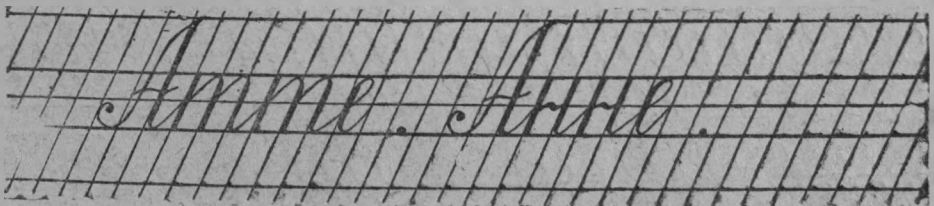 Amme. Anne.